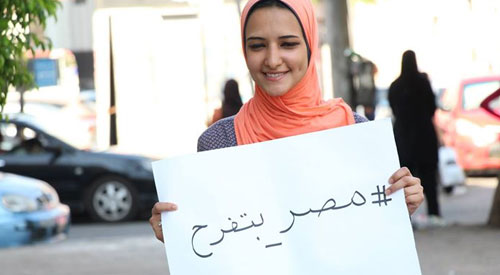 #مصر_بتفرح